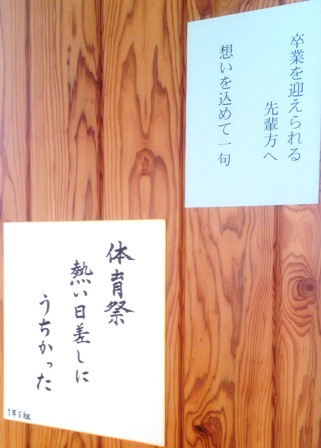 卒業を迎えられる
先輩方へ
想いを込めて一句
体育祭
熱い日差しに
うちかった
1年5組